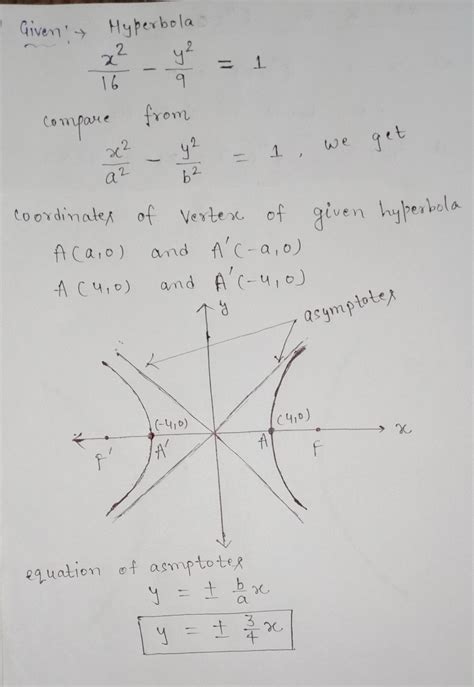 Given:→ Hyperbola
x²/16 - y²/9 = 1
compare from
x²/a² - y²/b² = 1, we get
coordinates of vertex of given hyperbola
A(a,0) and A'(-a,0)
A(4,0) and A'(-4,0)
y
asymptotes
(-4,0)
(4,0)
x
F'
A'
A
F
equation of asmptotes
y = ± b/a x
y = ± 3/4 x